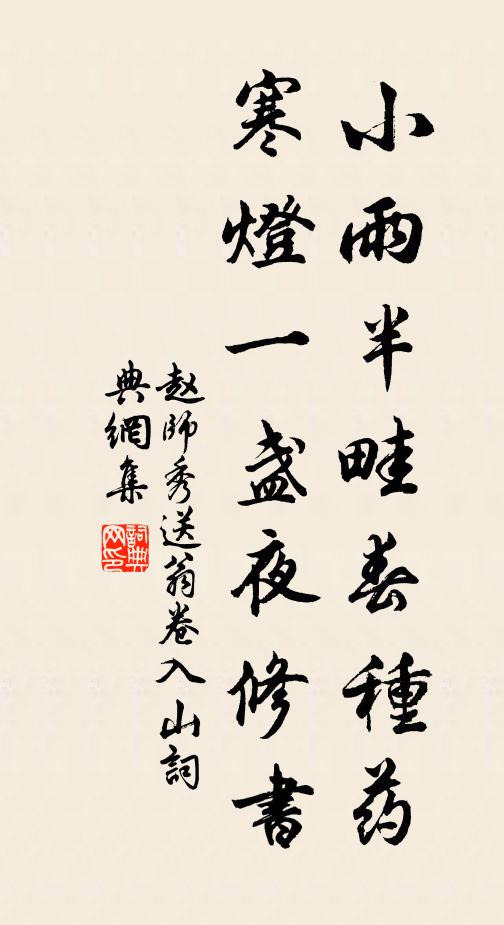 小雨半畦春種药
寒燈一盏夜修書
赵師秀送翁卷入山詞
典網集
詞典網印